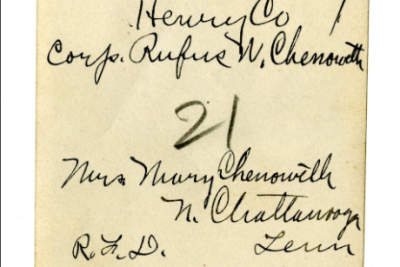 Henry Co
Corp. Rufus W. Chenowith
21
Mrs Mary Chenowith
N. Chattanooga
R.F.D. Tenn